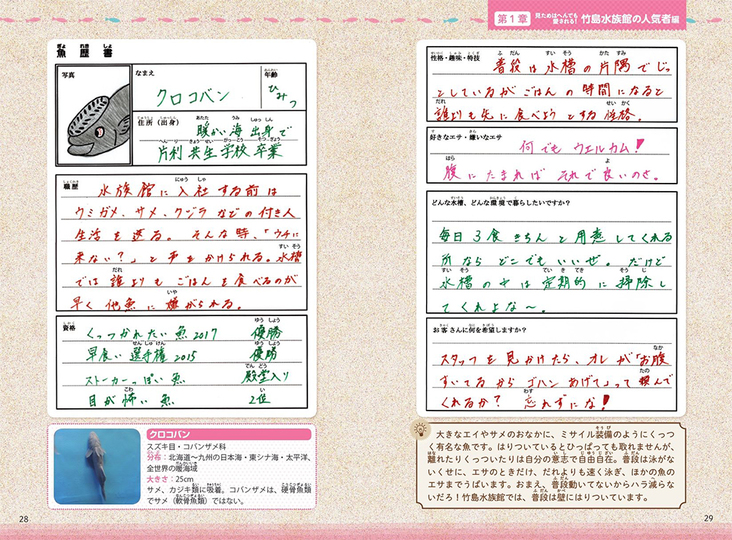 第1章 見ためはへんでも愛される！ 竹島水族館の人気者編
魚歴書
写真
なまえ
クロコバン
年齢
ひみつ
住所（出身）
暖かい海出身で
片利共生学校卒業
職歴
水族館に入社する前は
ウミガメ、サメ、クジラなどの付き人
生活を送る。そんな時、「ウチに
来ない？」と声をかけられる。水槽
では誰よりもごはんを食べるのが
早く他魚に嫌がられる。
資格
くっつかれたい魚2017 優勝
早食い選手権2015 優勝
ストーカーっぽい魚 殿堂入り
目が怖い魚 2位
クロコバン
スズキ目・コバンザメ科
分布：北海道〜九州の日本海・東シナ海・太平洋、
全世界の暖海域
大きさ：25cm
サメ、カジキ類に吸着。コバンザメは、硬骨魚類
でサメ（軟骨魚類）ではない。
28
性格・趣味・特技
普段は水槽の片隅でじっ
としているがごはんの時間になると
誰よりも先に食べようとする性格。
好きなエサ・嫌いなエサ
何でもウェルカム！
腹にたまればそれで良いのさ。
どんな水槽、どんな環境で暮らしたいですか？
毎日3食きちんと用意してくれる
所ならどこでもいいぜ。だけど
水槽の中は定期的に掃除し
てくれよな〜。
お客さんに何を希望しますか？
スタッフを見かけたら、オレが「お腹
すいてるからゴハンあげて」って頼んで
くれるか？忘れずにな！
大きなエイやサメのおなかに、ミサイル装備のようにくっつ
く有名な魚です。はりついているとひっぱっても取れませんが、
離れたりくっついたりは自分の意志で自由自在。普段は泳がな
いくせに、エサのときだけ、だれよりも速く泳ぎ、ほかの魚の
エサまでうばいます。おまえ、普段動いてないからハラ減らな
いだろ！竹島水族館では、普段は壁にはりついています。
29